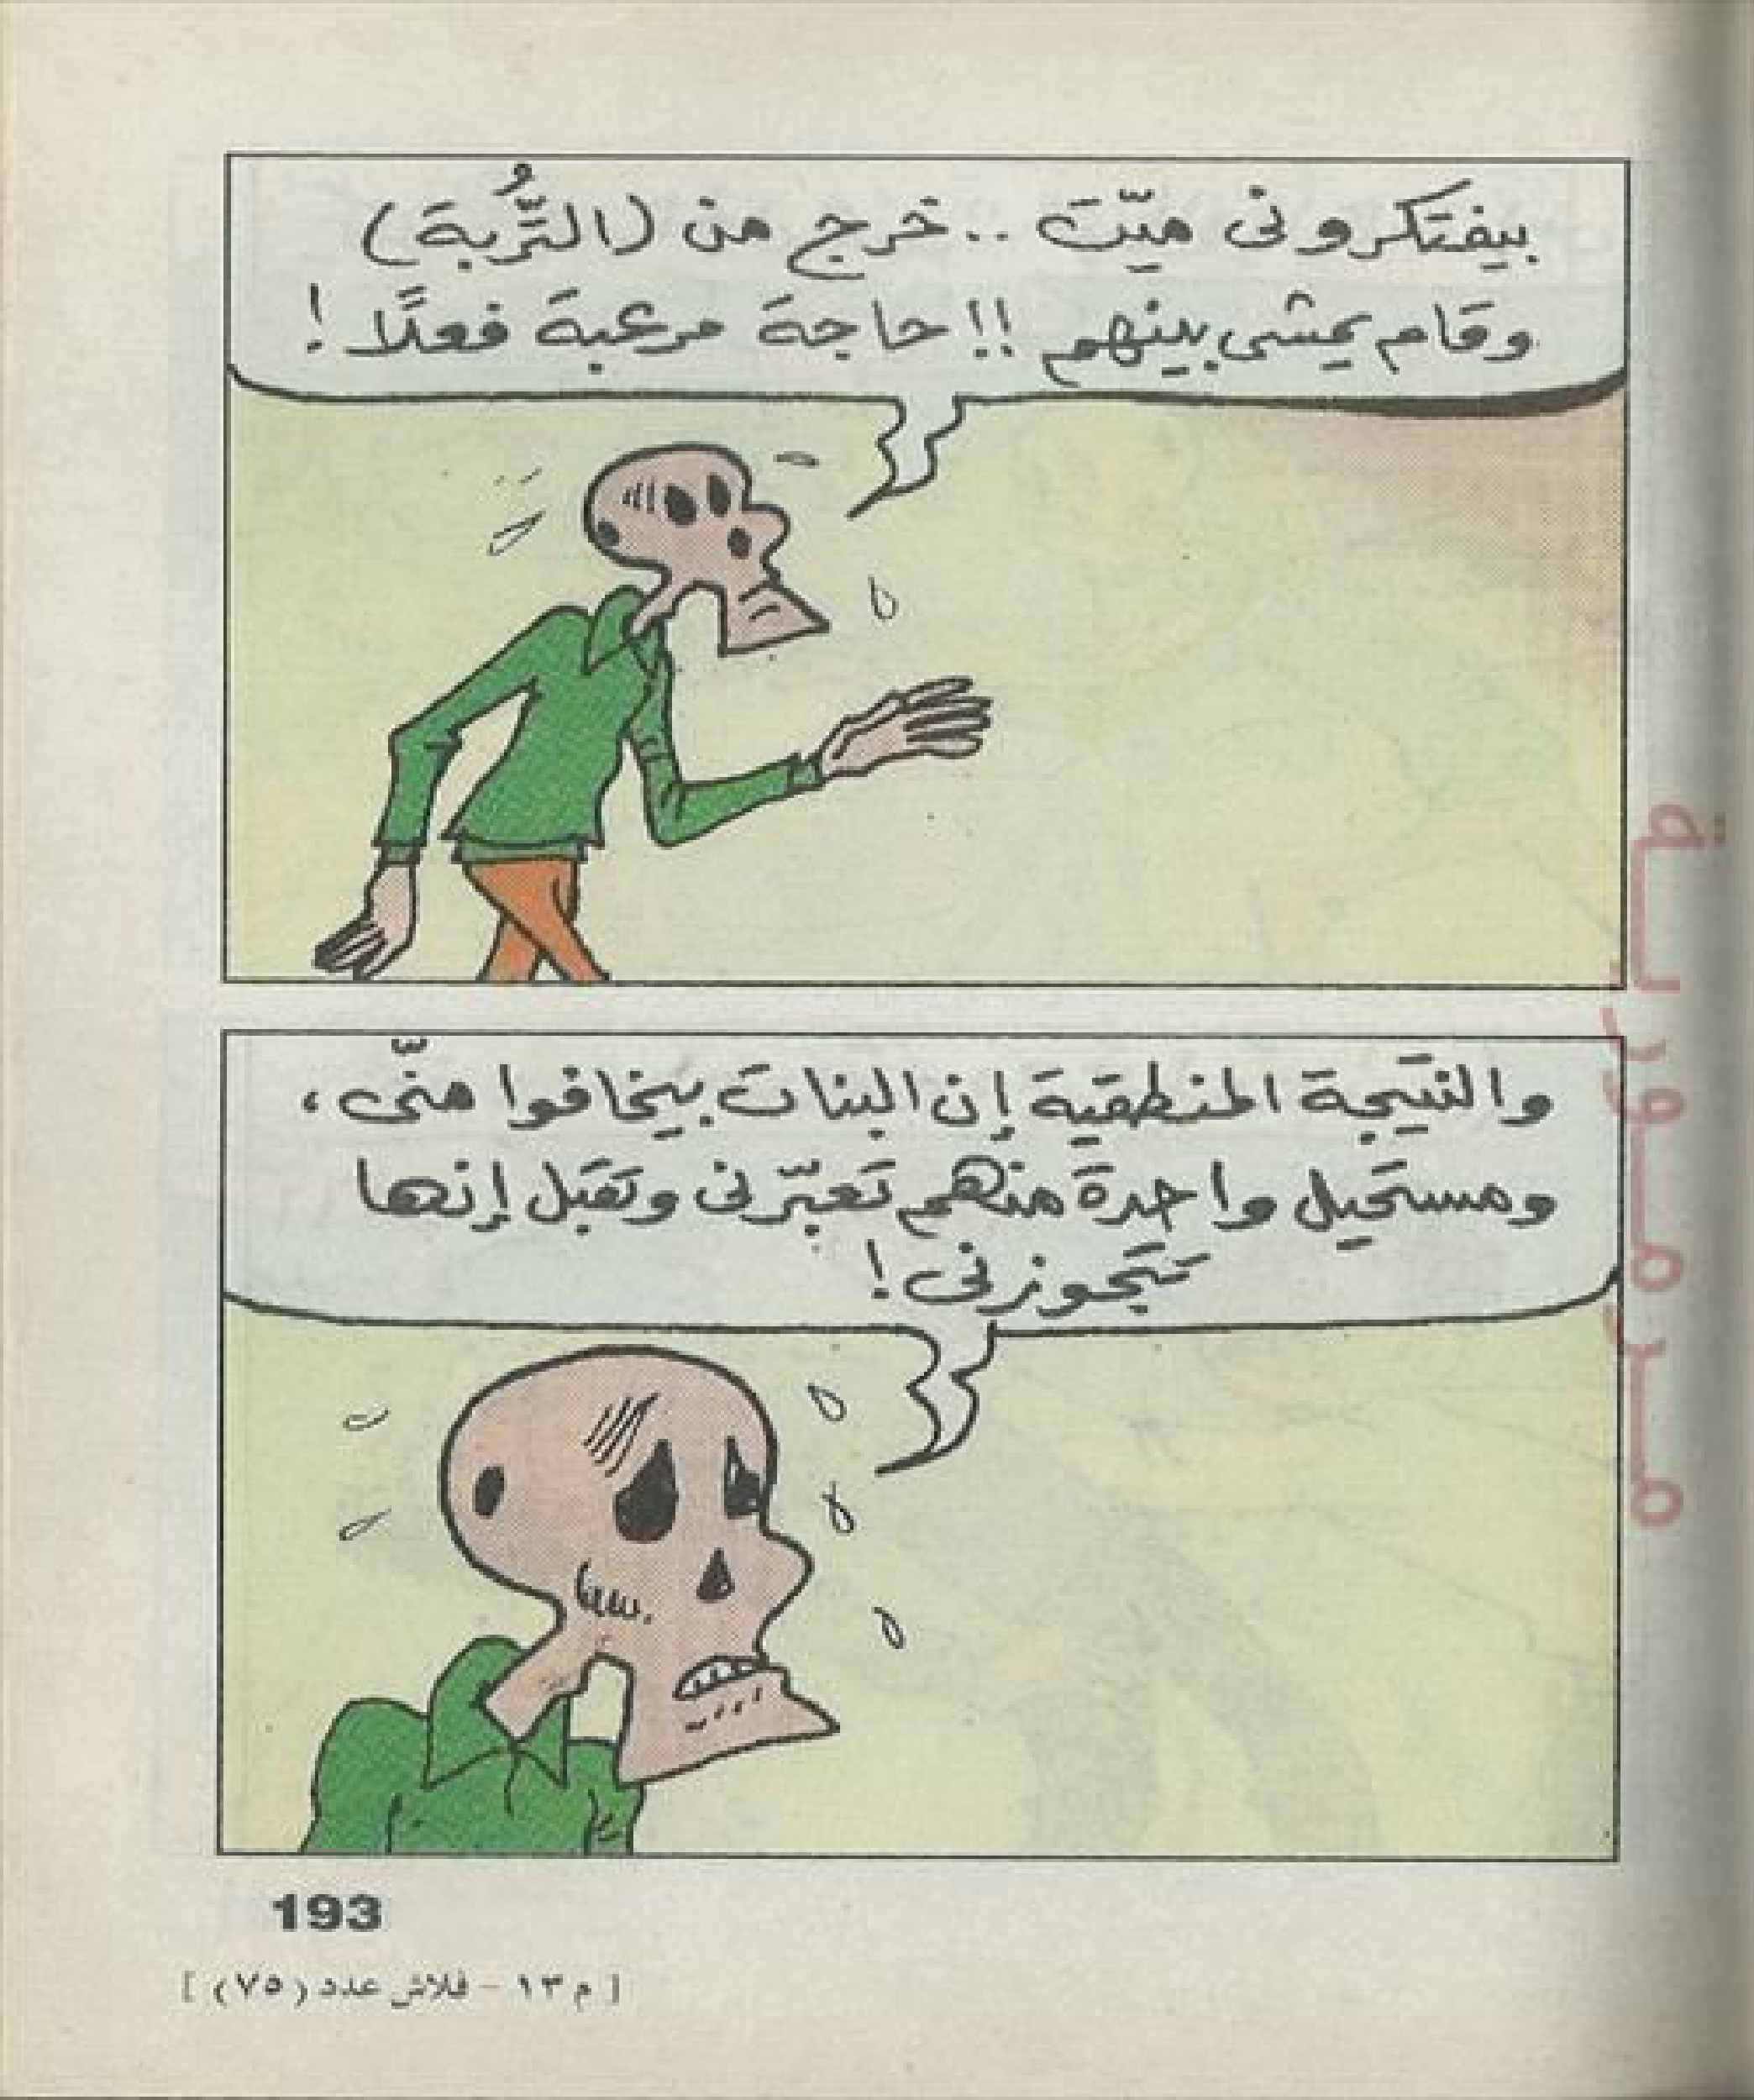 بيفتكرونى ميّت .. خرج من (التُّربة)
وقام يمشى بينهم !! حاجة مرعبة فعلًا !
والنتيجة المنطقية إن البنات بيخافوا منّى ،
ومستحيل واحدة منهم تعبّرنى وتقبل إنها
تتجوزنى !
193
[ م ١٣ - فلاش عدد (٧٥) ]